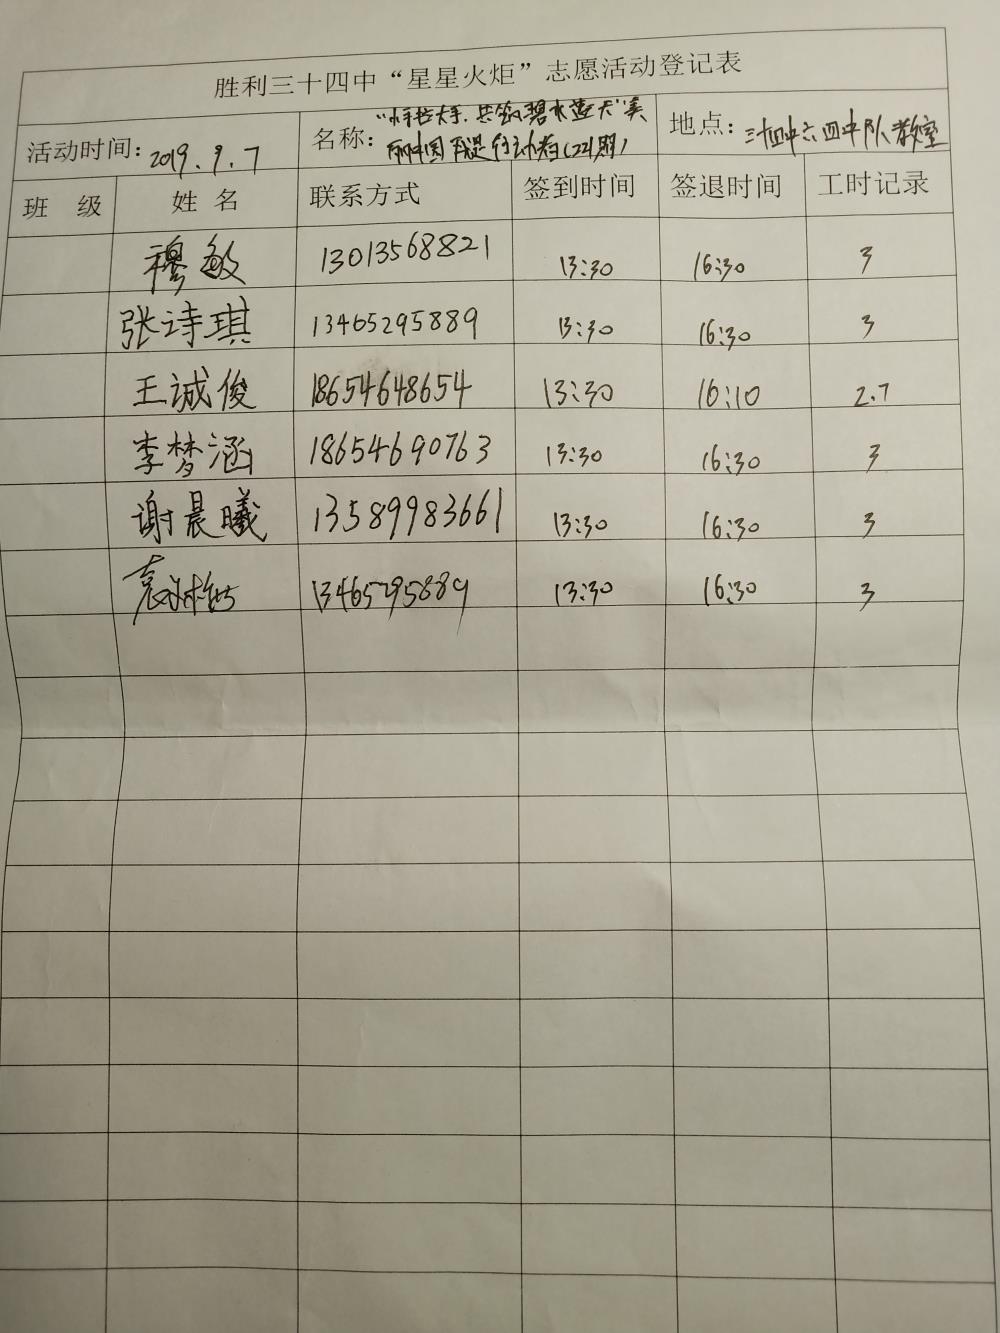 胜利三十四中“星星火炬”志愿活动登记表
活动时间：2019.9.7 名称：“小手拉大手，共筑碧水蓝天”美 地点：三十四中六四中队教室
丽中国 我是行动者(22期)
班 级 姓 名 联系方式 签到时间 签退时间 工时记录
穆敏 13013568821 13:30 16:30 3
张诗琪 13465295889 13:30 16:30 3
王诚俊 18654648654 13:30 16:10 2.7
李梦涵 18654690763 13:30 16:30 3
谢晨曦 13589983661 13:30 16:30 3
袁 13465295889 13:30 16:30 3